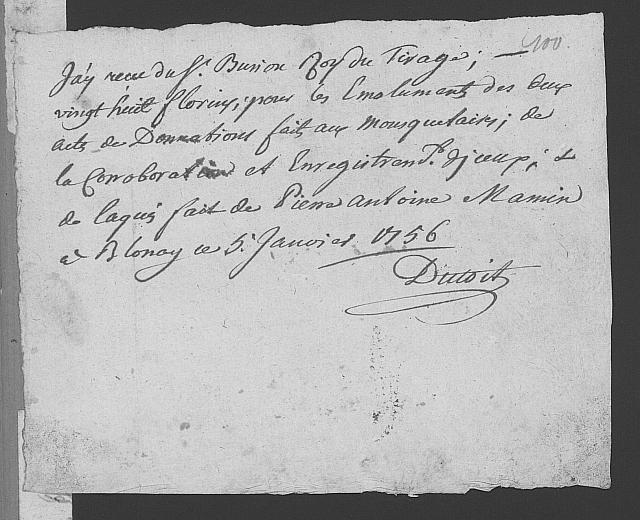 100.
J'ay reçu du Sr. Burion Roy du Tirage; —
vingt huit florins, pour les Emoluments des deux
acts de Donnations fait aux Mousquetaires; de
la Corroboration et Enregistrem.t d'iceux; &
de l'aquis fait de Pierre Antoine Mamin
à Blonay ce 5e. Janvier 1756
Dutoit